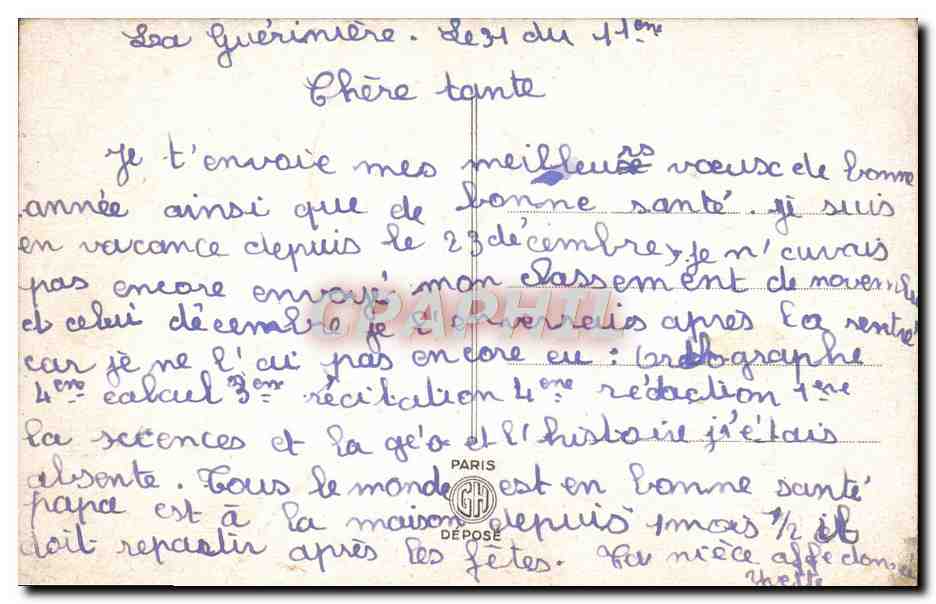 La Guérinière. Le 31 du 11ene
Chère tante
Je t'envoie mes meilleurs vœux de bonne
année ainsi que de bonne santé. je suis
en vacance depuis le 23 décembre, je n'avais
pas encore envoyé mon classement de novembre
et celui décembre je t'enverrais après la rentré
car je ne l'ai pas encore eu : orthographe
4ene calcul 3ene récitation 4ene rédaction 1ene
la sciences et la géo et l'histoire j'étais
absente. Tous le monde est en bonne santé
papa est à la maison depuis 1 mois 1/2 il
doit repartir après les fêtes. Ta nièce
Yvette
CPAPHIL
PARIS
GH
DÉPOSÉ